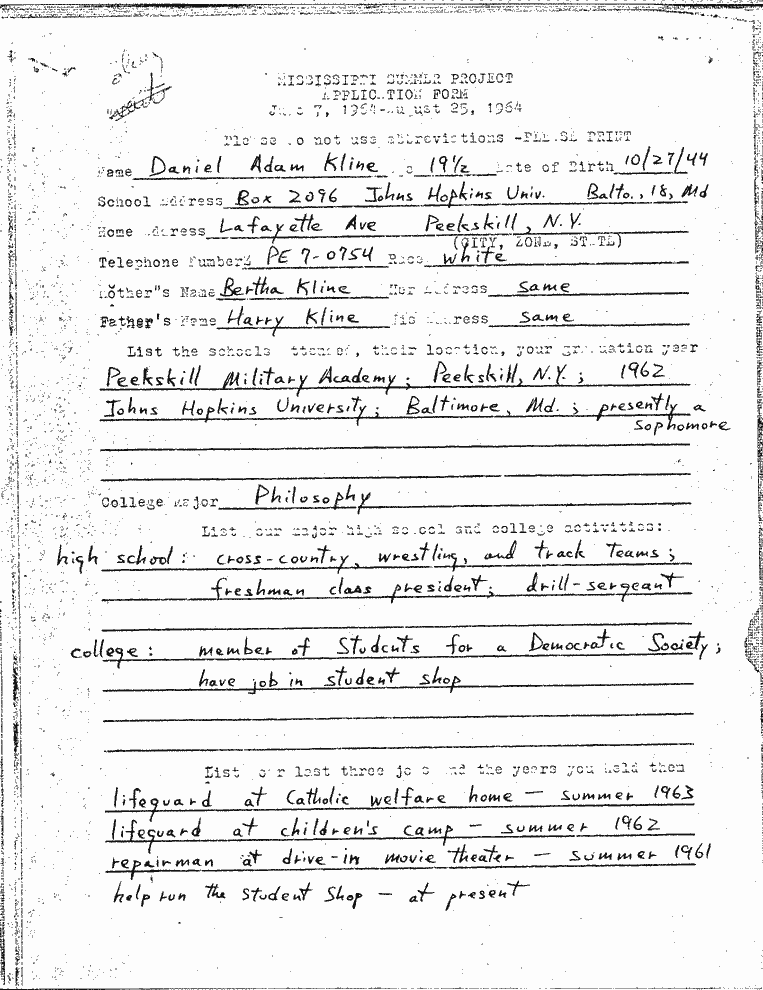 MISSISSIPPI SUMMER PROJECT
APPLICATION FORM
June 7, 1964-August 25, 1964
Please do not use abbreviations -PLEASE PRINT
Name Daniel Adam Kline 19½ Date of Birth 10/27/44
School Address Box 2096 Johns Hopkins Univ. Balto., 18, Md
Home Address Lafayette Ave Peekskill, N.Y.
(CITY, ZONE, STATE)
Telephone Number PE 7-0754 Race white
Mother"s Name Bertha Kline Her Address same
Father's Name Harry Kline His Address same
List the schools attended, their location, your graduation year
Peekskill Military Academy; Peekskill, N.Y.; 1962
Johns Hopkins University; Baltimore, Md.; presently a
Sophomore
College Major Philosophy
List your major high school and college activities:
high school: cross-country, wrestling, and track teams;
freshman class president; drill-sergeant
college: member of Students for a Democratic Society;
have job in student shop
List your last three jobs and the years you held them
lifeguard at Catholic welfare home — summer 1963
lifeguard at children's camp — summer 1962
repairman at drive-in movie theater — summer 1961
help run the Student Shop — at present